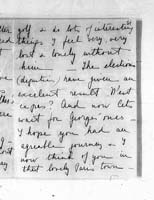 golf & do lots of interesting
things. I feel very, very
lost & lonely without
him. The elections
(deputies) have given an
excellent result. N'est
ce pas? And now lets
wait for Georges' ones.
I hope you had an
agreeable journey & I
now think of you in
that lovely Paris town